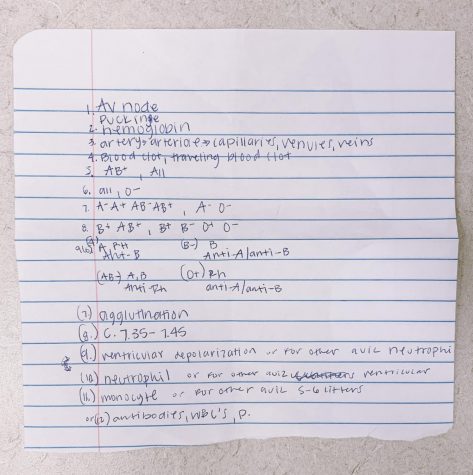 1. AV node
Puckinge
2. hemoglobin
3. artery → arteriole → capillaries, venules, veins
4. Blood clot, traveling blood clot
5. AB+, All
6. all, O-
7. A- A+ AB- AB+, A- O-
8. B+ AB+, B+ B- O+ O-
A, Rh (B-) B
Anti-B Anti-A/anti-B
(AB-) A, B (O+) Rh
Anti-Rh anti-A/anti-B
(7.) agglutination
(8.) C. 7.35-7.45
(9.) ventricular depolarization or for other quiz neutrophi
(10.) neutrophil or for other quiz ventricular
(11.) monocyte or for other quiz 5-6 litters
or (12) antibodies, WBC's, P.